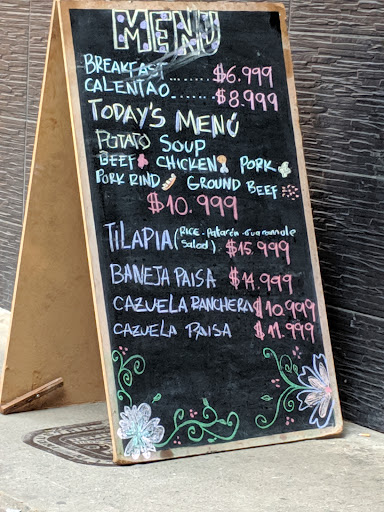 MENU
BREAKFAST ........ $6.999
CALENTAO ....... $8.999
TODAY'S MENÚ
POTATO SOUP
BEEF CHICKEN PORK
PORK RIND GROUND BEEF
$10.999
TILAPIA (RICE - Patacón - Guacamole
Salad) $15.999
BANEJA PAISA $14.999
CAZUELA RANCHERA $10.999
CAZUELA PAISA $11.999